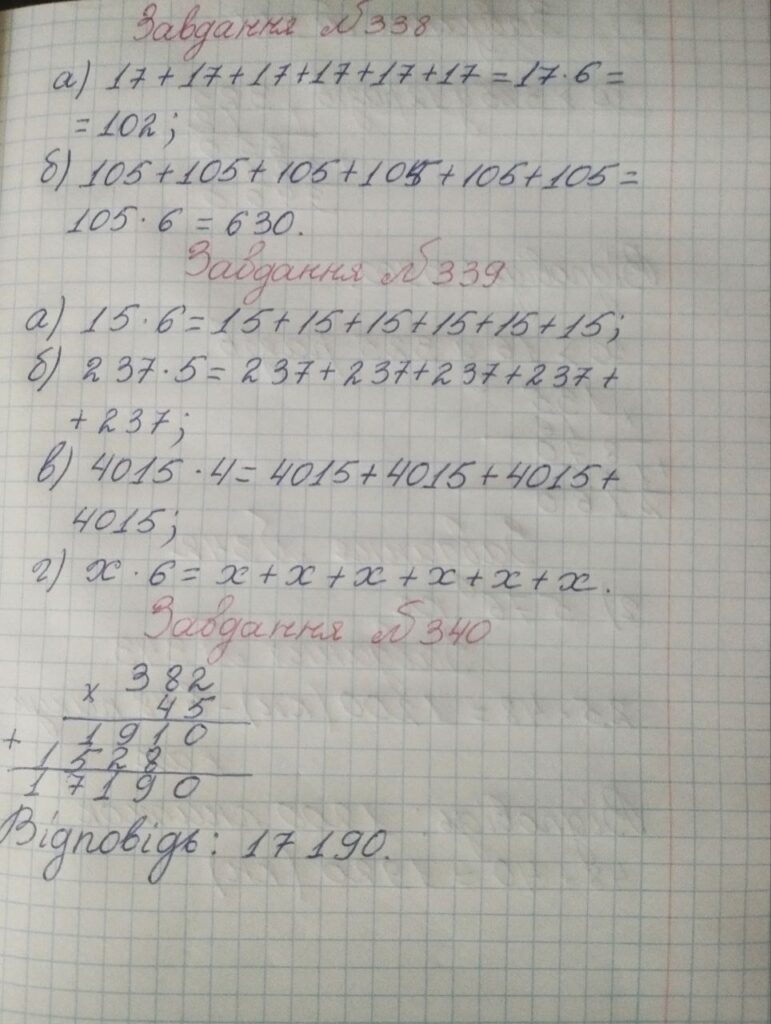 Завдання №338
а) 17+17+17+17+17+17=17·6=
=102;
б) 105+105+105+105+105+105=
105·6=630.
Завдання №339
а) 15·6=15+15+15+15+15+15;
б) 237·5=237+237+237+237+
+237;
в) 4015·4=4015+4015+4015+
4015;
г) x·6=x+x+x+x+x+x.
Завдання №340
x 382
45
+ 1910
1528
17190
Відповідь: 17190.